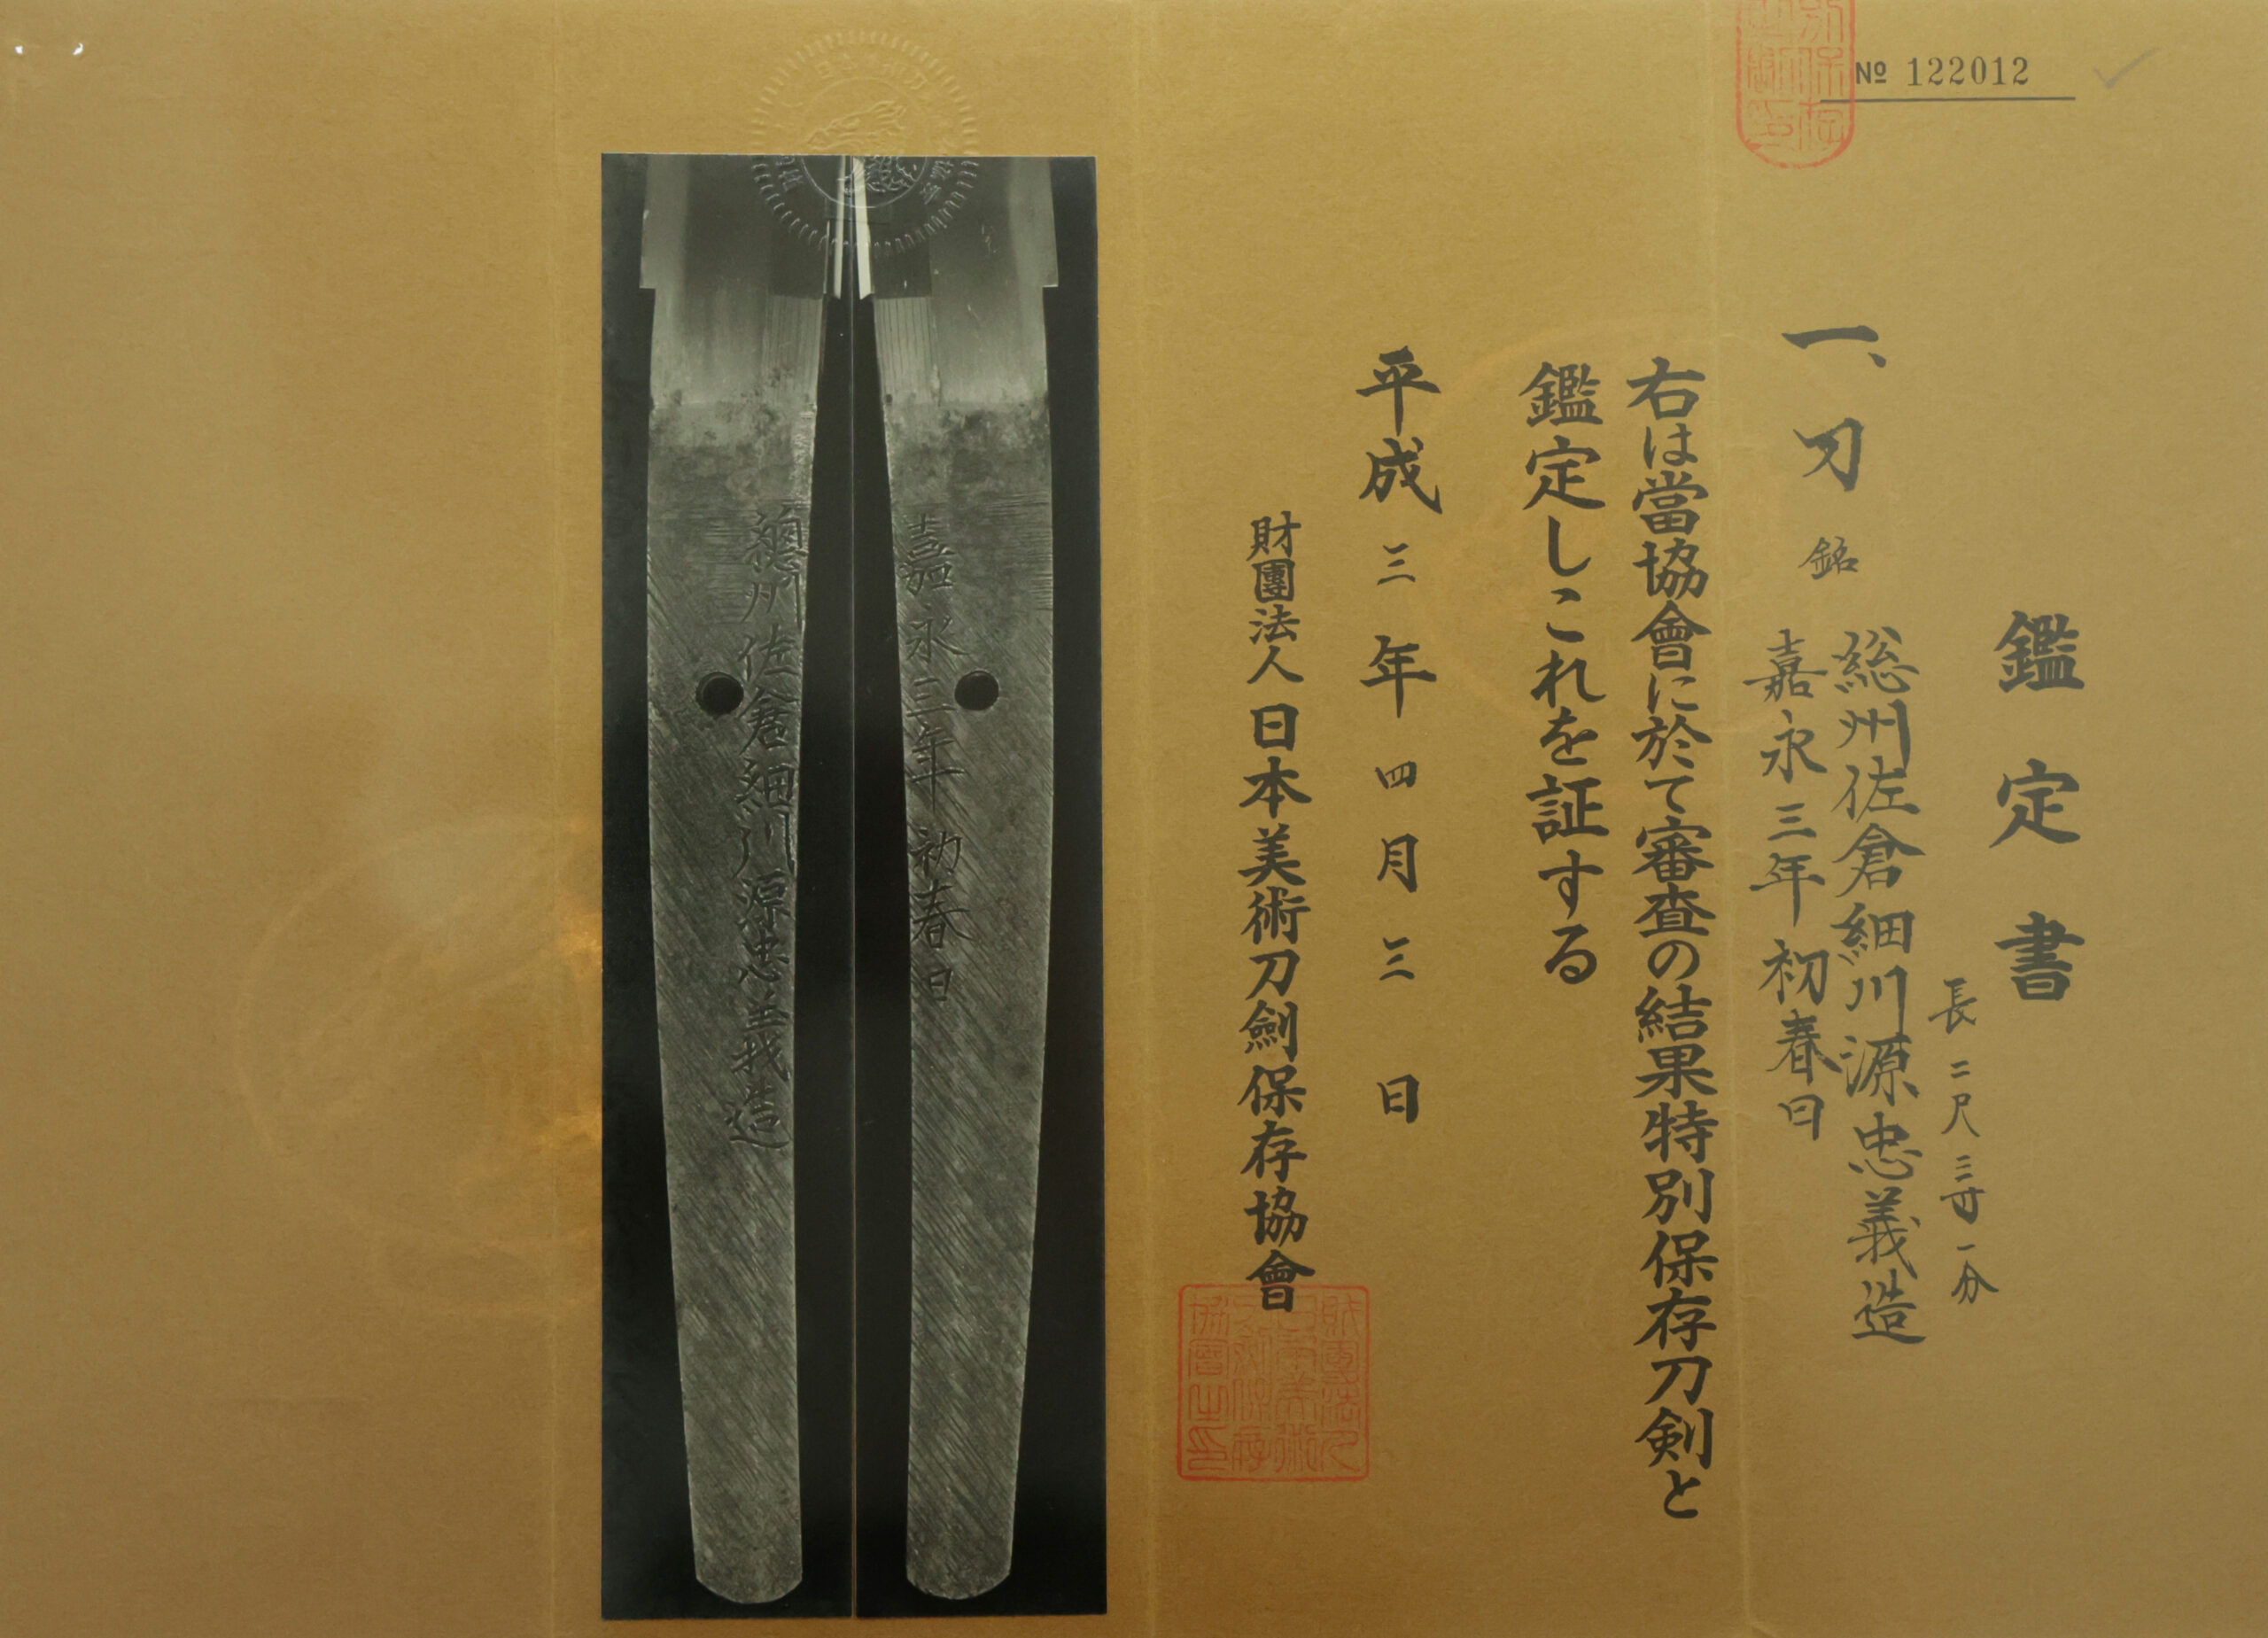 № 122012
鑑定書
一、刀 銘 総州佐倉細川源忠義造
嘉永三年初春日
長 二尺三寸一分
右は當協會に於て審査の結果特別保存刀剣と
鑑定しこれを証する
平成三年四月三日
財團法人日本美術刀劍保存協會
嘉永三年初春日
總州佐倉細川源忠義造